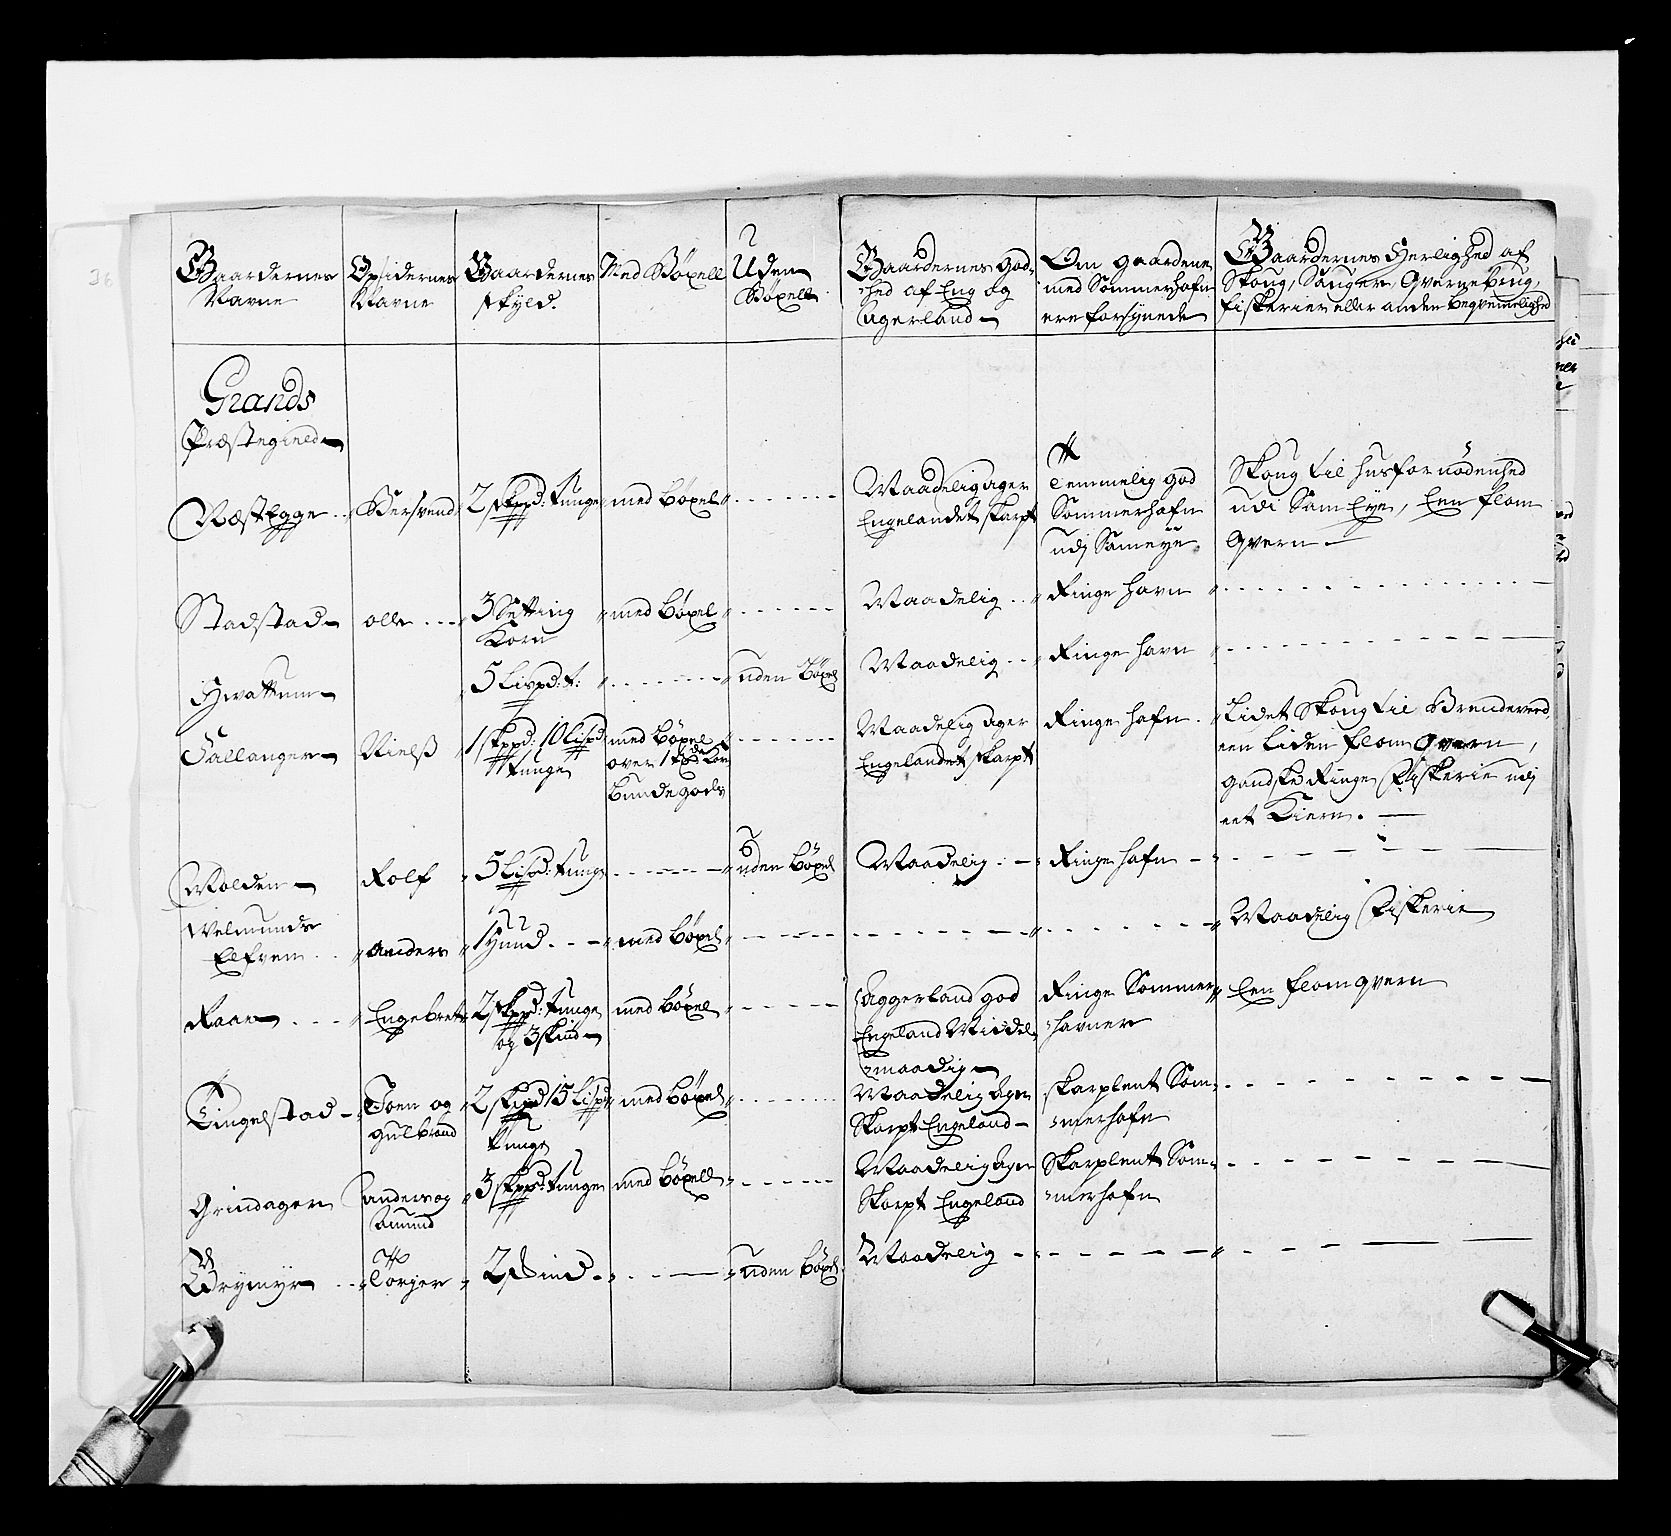 Gaardernes Navne | Opsidernes Navne | Gaardernes skyld. | Med Bøxell | Uden Bøxell | Gaardernes God-hed af Eng og Agerland | Om gaardene med Sommerhafn ere forsynede | Gaardernes Herlighed af Skoug, Sauger, Qvernebrug, fiskerier eller anden beqvemmelighed
Grands
Præstegield
Næstegge | Bersvend | 2 skpd: tunge | med Bøxel | Maadelig ager Engelandet skarpt | temmelig god Sommerhafn udj Sameye | Skoug til huusfornødenhed udi Sam Eye, Een flom qvern
Stadstad | olle | 3 Setting Korn | med bøxel | Maadelig | Ringe havn
Hwattum | 5 Lispd: t: | uden Bøxel | Maadelig | Ringe havn
Fallanger | Nielss | 1 skppd: 10 Lispd tunge | med bøxel over 1 Korn Bundegods | Maadelig ager Engelandet skarpt | Ringe hafn | Lidet Skoug til Brendeveed, een liden flom Qvern, gandske Ringe Fiskerie udj eet Kiern.
Molden | Rolf | 5 Lispd: tunge | uden bøxel | Maadelig | Ringe hafn
Velmunds Elfven | Anders | 1 Hund | med bøxel | Maadelig Fiskerie
Raan | Engebret | 2 skppd: tunge og 3 skind | med bøxel | Aggerland god Engeland Middel-maadig | Ringe Sommer-havner | Een flom qvern
Tingelstad | Joen og Gulbrand | 2 skpd 15 Lispd tunge | med bøxel | Maadelig Ager Skarpt Engeland | skarplent Som-merhafn
Grindager | anders og Amund | 3 skppd: tunge | med bøxell | Maadelig Ager Skarpt Engeland | Skarplent Som-merhafn
Brymyr | Torger | 2 skind | uden bøxel | Maadelig